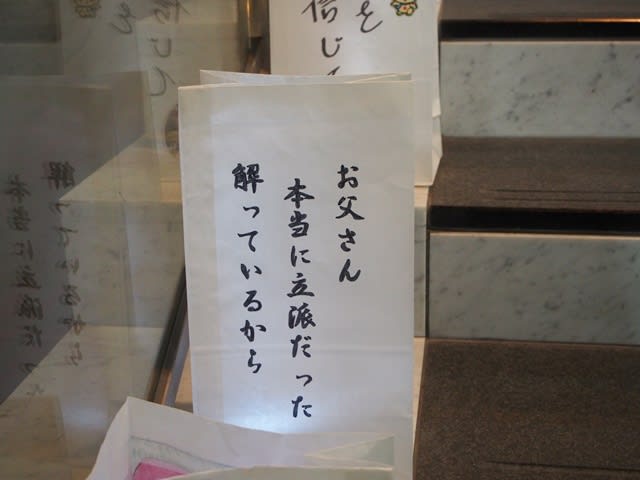 お父さん
本当に立派だった
解っているから
を
信じ